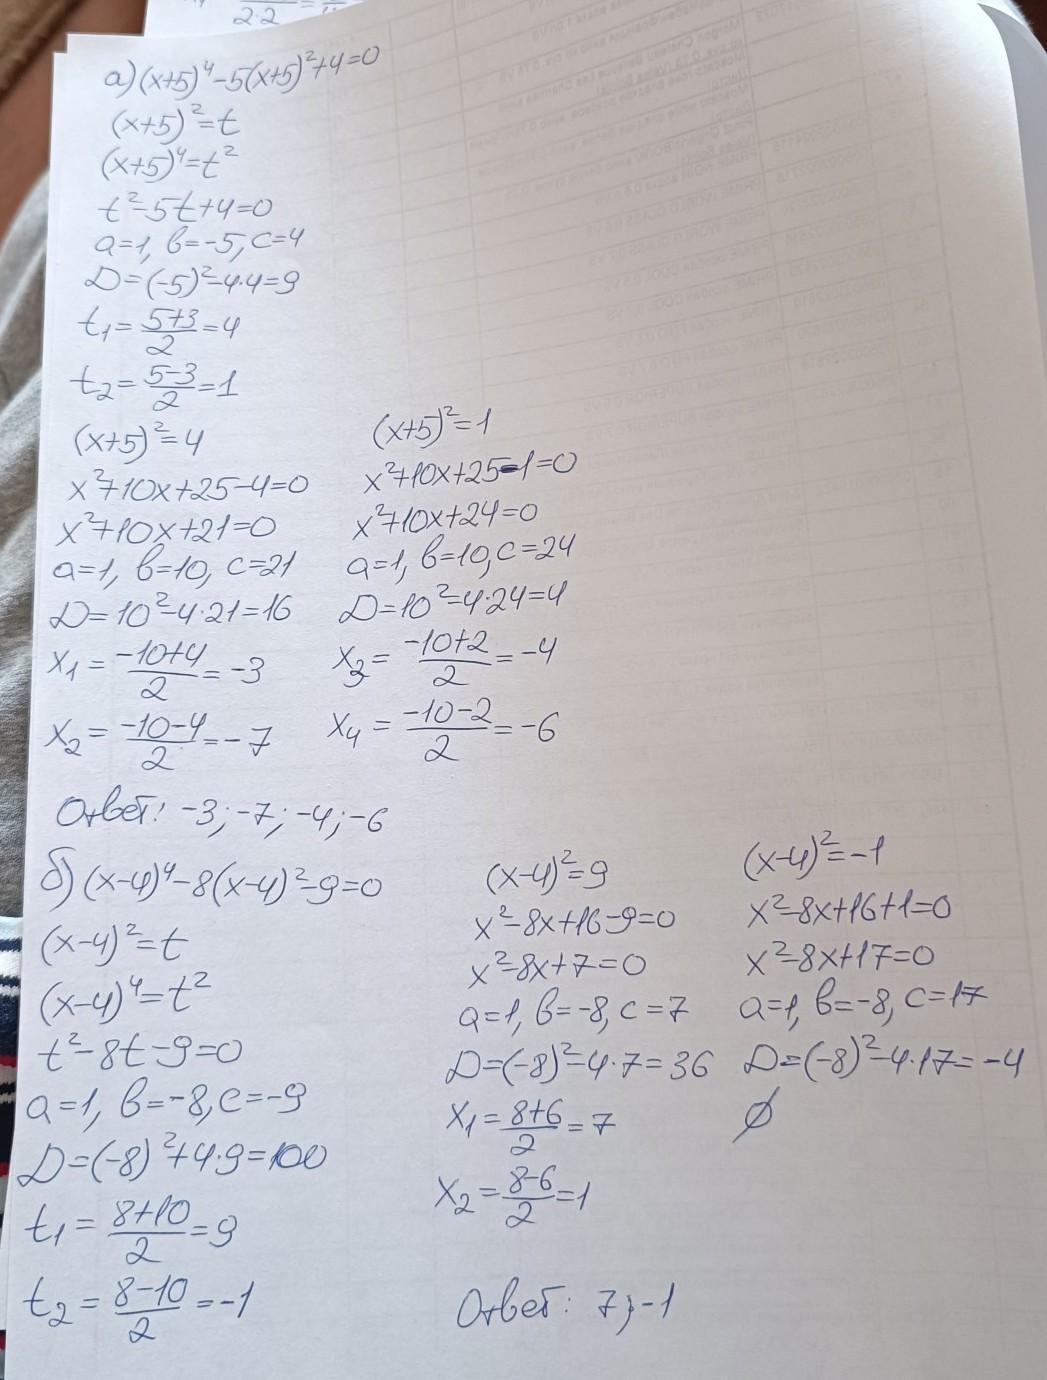 а) (x+5)⁴-5(x+5)²+4=0
(x+5)²=t
(x+5)⁴=t²
t²-5t+4=0
a=1, b=-5, c=4
D=(-5)²-4·4=9
t₁=(5+3)/2=4
t₂=(5-3)/2=1
(x+5)²=4
x²+10x+25-4=0
x²+10x+21=0
a=1, b=10, c=21
D=10²-4·21=16
x₁=(-10+4)/2=-3
x₂=(-10-4)/2=-7
(x+5)²=1
x²+10x+25-1=0
x²+10x+24=0
a=1, b=10, c=24
D=10²-4·24=4
x₃=(-10+2)/2=-4
x₄=(-10-2)/2=-6
Ответ: -3; -7; -4; -6
б) (x-4)⁴-8(x-4)²-9=0
(x-4)²=t
(x-4)⁴=t²
t²-8t-9=0
a=1, b=-8, c=-9
D=(-8)²+4·9=100
t₁=(8+10)/2=9
t₂=(8-10)/2=-1
(x-4)²=9
x²-8x+16-9=0
x²-8x+7=0
a=1, b=-8, c=7
D=(-8)²-4·7=36
x₁=(8+6)/2=7
x₂=(8-6)/2=1
(x-4)²=-1
x²-8x+16+1=0
x²-8x+17=0
a=1, b=-8, c=17
D=(-8)²-4·17=-4
∅
Ответ: 7; -1